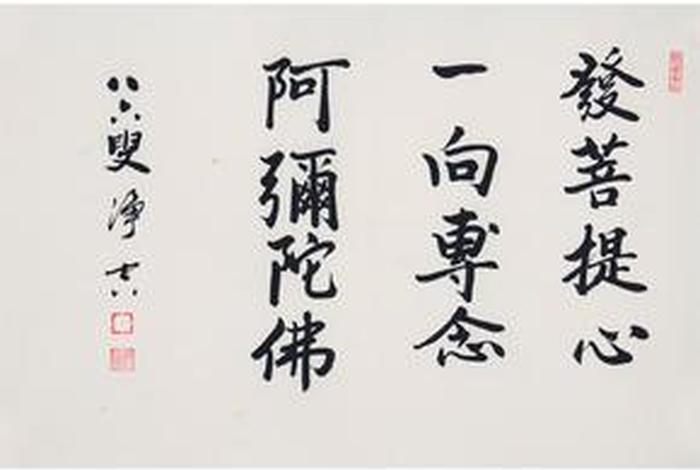 發菩提心
一向專念
阿彌陀佛
八六叟淨空